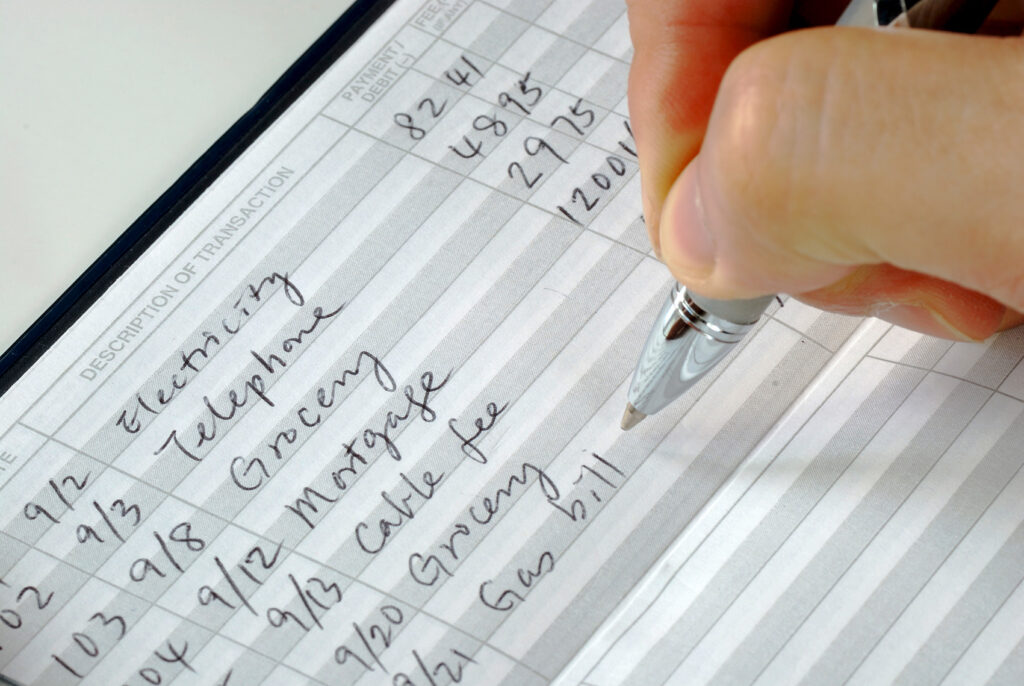 TE DESCRIPTION OF TRANSACTION PAYMENT / DEBIT (–) FEE (IF ANY)
9/2 Electricity 82 41
02 9/3 Telephone 48 95
103 9/8 Grocery 29 75
04 9/12 Mortgage 1200
9/13 Cable fee
9/20 Grocery
9/21 Gas bill